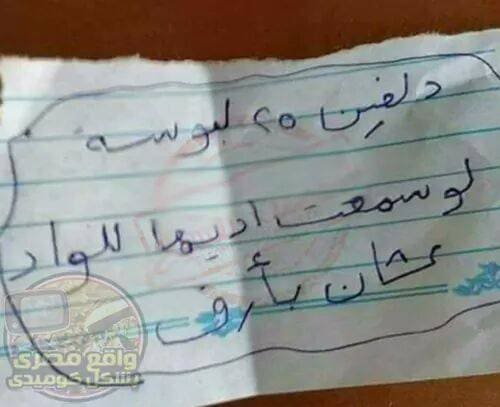 دلفين ٢٥ لبوسه
لو سمعت اديها للواد
عشان بأرف
واقع مصرى
بشكل كوميدى